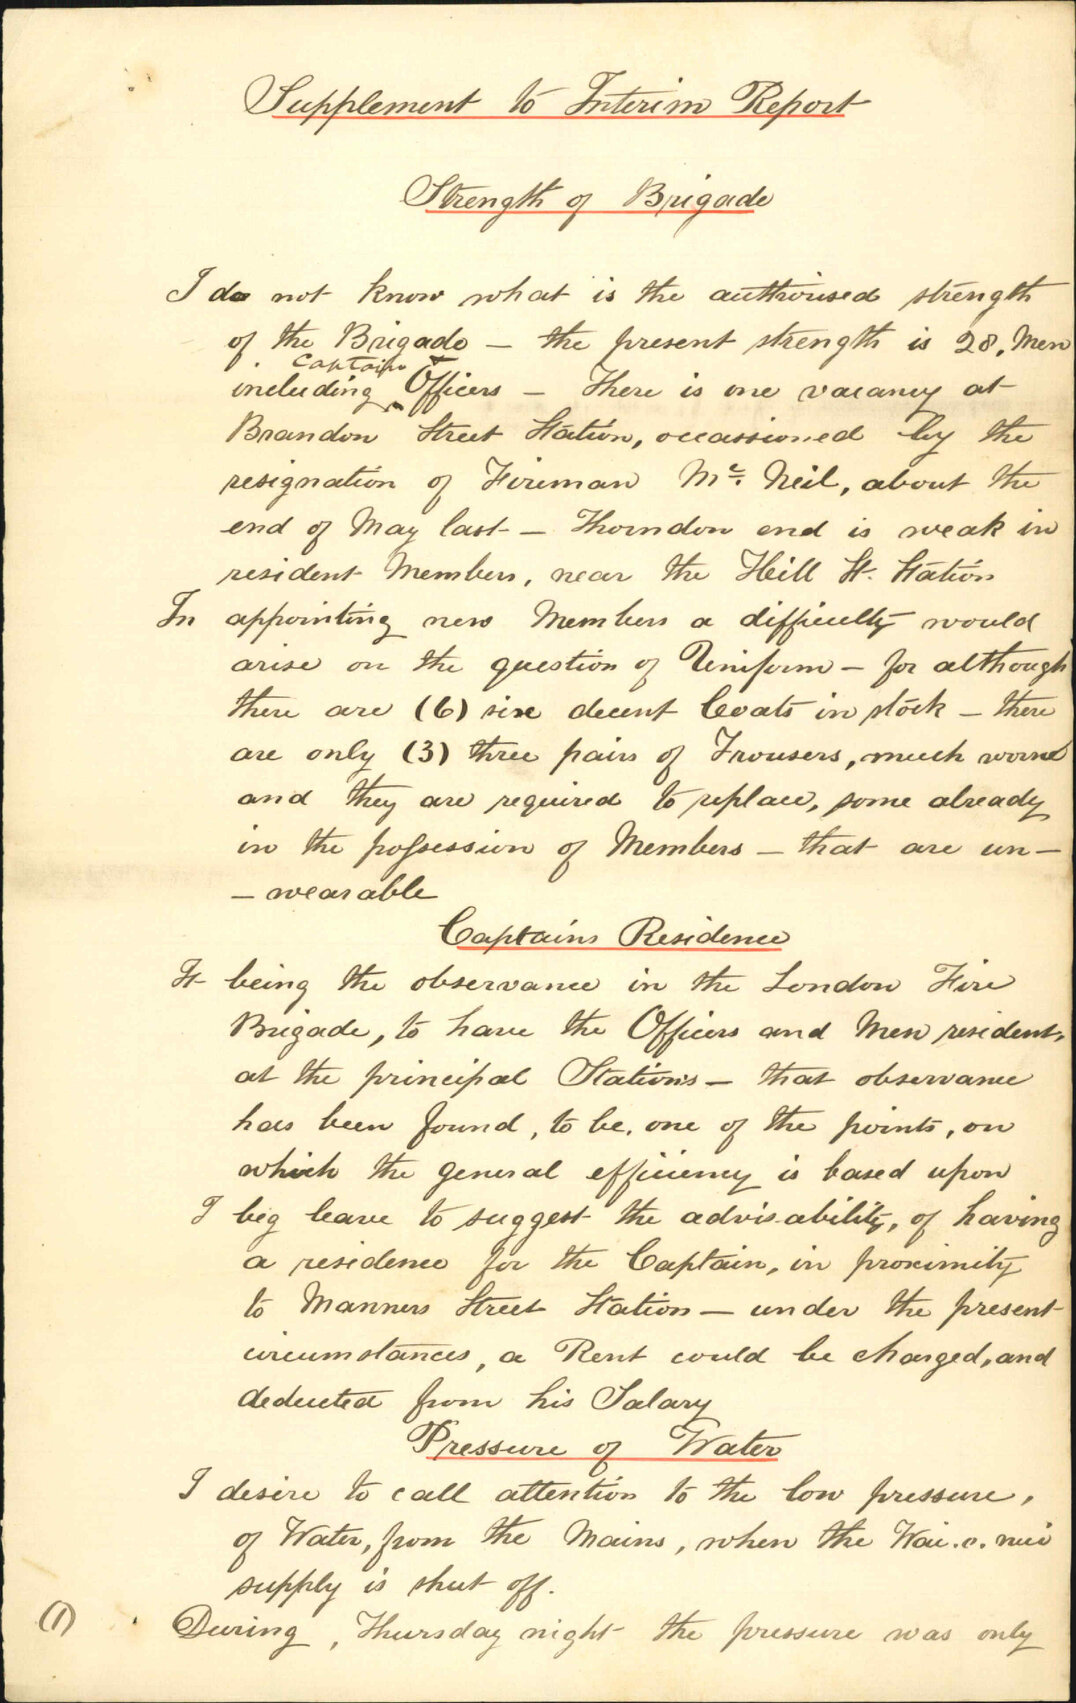 Supplement to Interim Report
Strength of Brigade
I do not know what is the authorised strength
of the Brigade — the present strength is 28, Men
Captain &
including Officers — There is one vacancy at
Brandon Street Station, occassioned by the
resignation of Fireman Mc. Neil, about the
end of May last — Thorndon end is weak in
resident Members, near the Hill St. Station
In appointing new Members a difficulty would
arise on the question of Uniform — for although
there are (6) six decent Coats in stock — there
are only (3) three pairs of Trousers, much worne
and they are required to replace, some already
in the possession of Members — that are un—
— wearable
Captains Residence
It being the observance in the London Fire
Brigade, to have the Officers and Men resident,
at the principal Stations — that observance
has been found, to be, one of the points, on
which the general efficiency is based upon
I beg leave to suggest the advisability, of having
a residence for the Captain, in proximity
to Manners Street Station — under the present
circumstances, a Rent could be charged, and
deducted from his Salary
Pressure of Water
I desire to call attention to the low pressure,
of Water, from the Mains, when the Wai.o.nui
supply is shut off.
(1) During, Thursday night the pressure was only